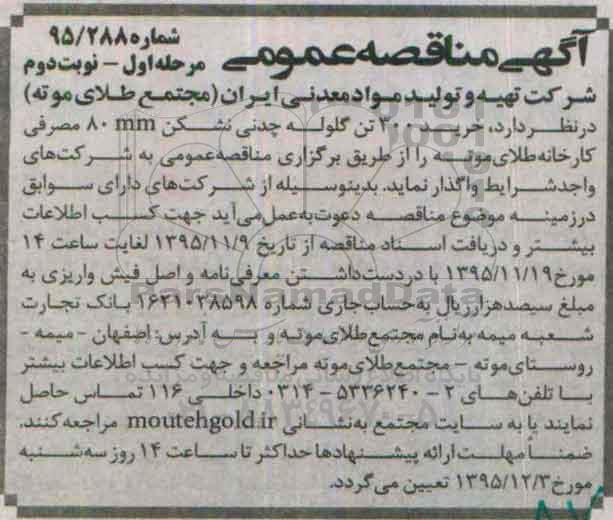 آگهی مناقصه عمومی
شماره ۹۵/۲۸۸
مرحله اول - نوبت دوم
شرکت تهیه و تولید مواد معدنی ایران (مجتمع طلای موته)
درنظر دارد، خرید تن گلوله چدنی نشکن ۸۰ mm مصرفی
کارخانه طلای موته را از طریق برگزاری مناقصه عمومی به شرکت‌های
واجد شرایط واگذار نماید. بدینوسیله از شرکت‌های دارای سوابق
درزمینه موضوع مناقصه دعوت به عمل می‌آید جهت کسب اطلاعات
بیشتر و دریافت اسناد مناقصه از تاریخ ۱۳۹۵/۱۱/۹ لغایت ساعت ۱۴
مورخ ۱۳۹۵/۱۱/۱۹ با در دست داشتن معرفی‌نامه و اصل فیش واریزی به
مبلغ سیصدهزار ریال به حساب جاری شماره ۱۶۴۱۰۳۸۵۹۸ بانک تجارت
شعبه میمه به نام مجتمع طلای موته و به آدرس: اصفهان - میمه -
روستای موته - مجتمع طلای موته مراجعه و جهت کسب اطلاعات بیشتر
با تلفن‌های ۲ - ۵۳۳۶۲۴۰ - ۰۳۱۴ داخلی ۱۱۶ تماس حاصل
نمایند یا به سایت مجتمع به نشانی moutehgold.ir مراجعه کنند.
ضمناً مهلت ارائه پیشنهادها حداکثر تا ساعت ۱۴ روز سه‌شنبه
مورخ ۱۳۹۵/۱۲/۳ تعیین می‌گردد.
ParsNamadData